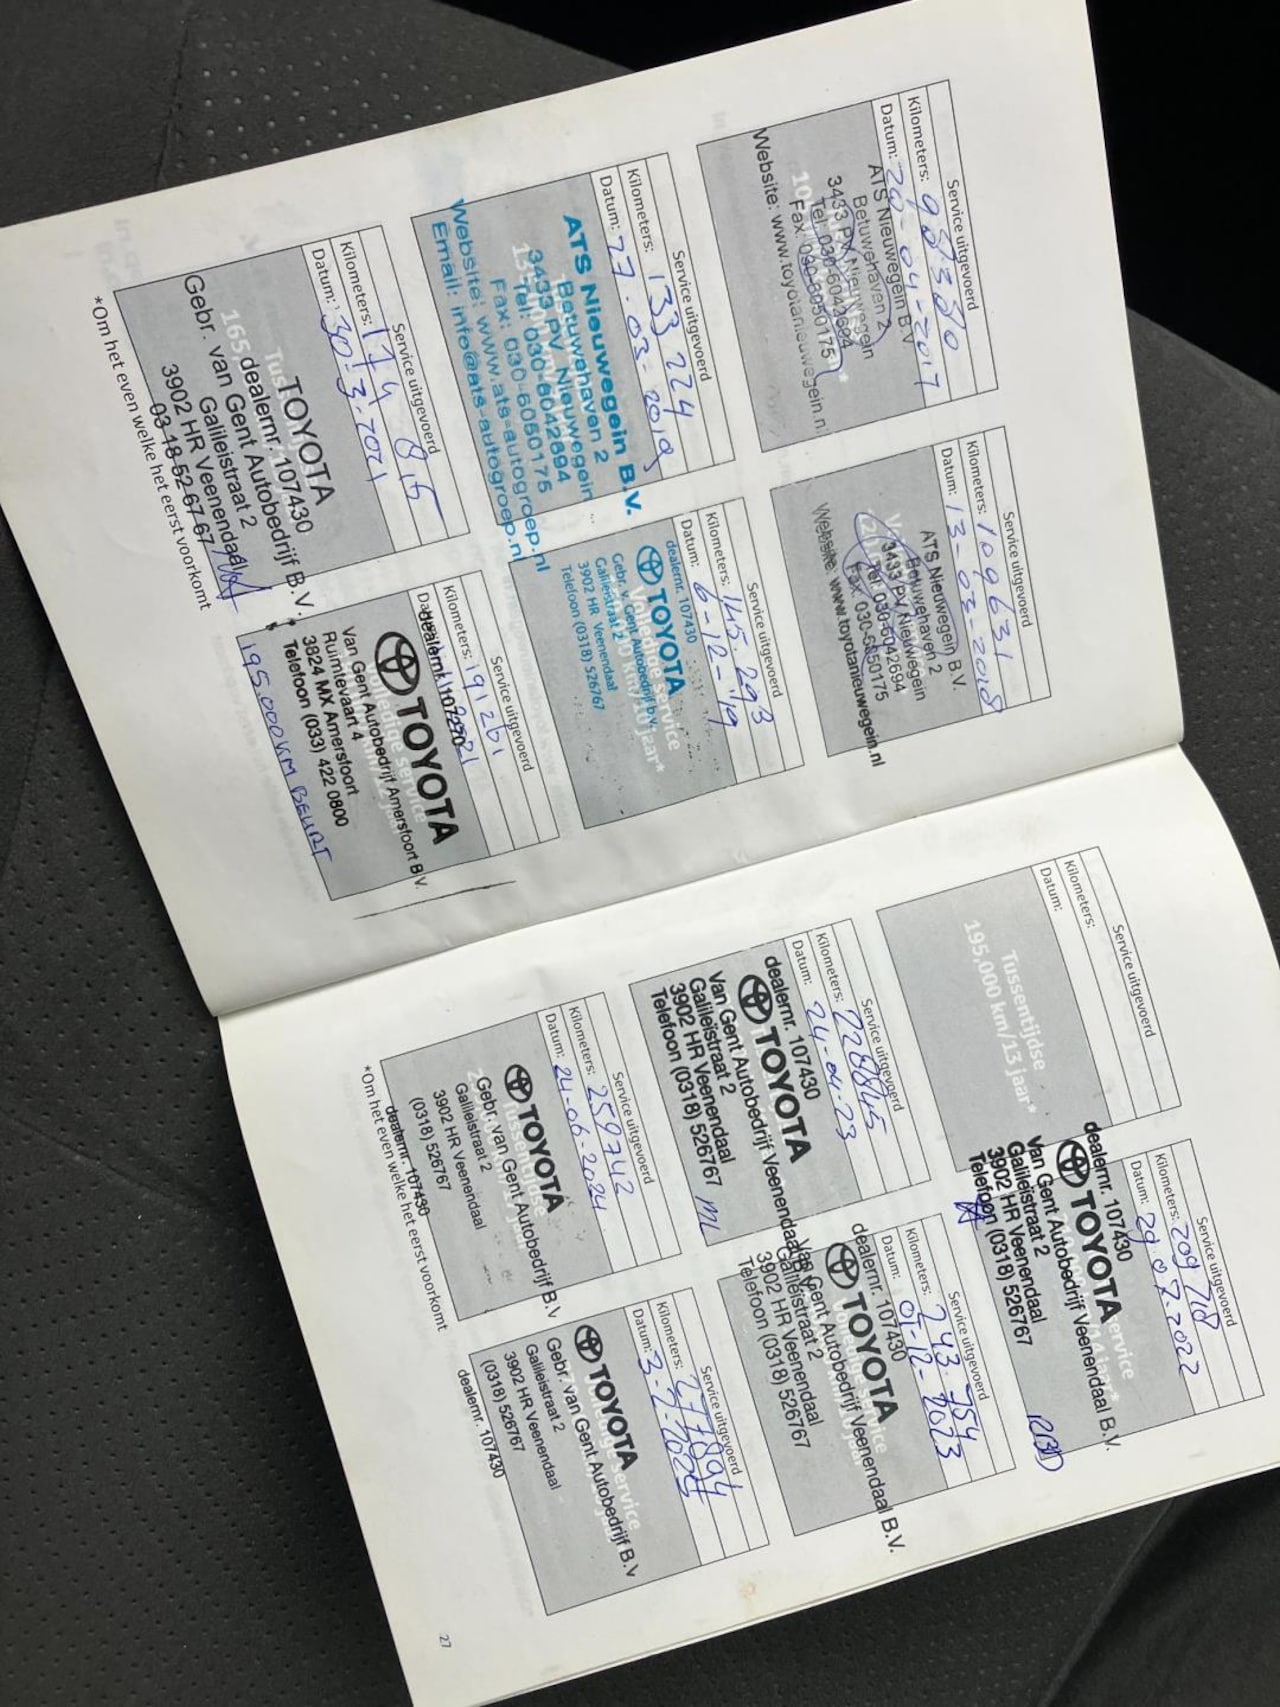 Service uitgevoerd
Kilometers: 98380
Datum: 20-04-2017
ATS Nieuwegein B.V.
Betuwehaven 2
3433 PV Nieuwegein
Tel. 030-6042694
Fax. 030-6050175
Website: www.toyotanieuwegein.nl
Service uitgevoerd
Kilometers: 109631
Datum: 13-03-2018
ATS Nieuwegein B.V.
Betuwehaven 2
3433 PV Nieuwegein
Tel. 030-6042694
Fax. 030-6050175
Website: www.toyotanieuwegein.nl
Service uitgevoerd
Kilometers: 133 224
Datum: 27-03-2019
ATS Nieuwegein B.V.
Betuwehaven 2
3433 PV Nieuwegein
Tel: 030-6042694
Fax: 030-6050175
Website: www.ats-autogroep.nl
Email: info@ats-autogroep.nl
Service uitgevoerd
Kilometers: 145.293
Datum: 6-12-'19
dealernr. 107430
TOYOTA
Volledige service
Gebr. v. Gent Autobedrijf b.v.
Galileistraat 2
3902 HR Veenendaal
Telefoon (0318) 526767
Service uitgevoerd
Kilometers: 174 815
Datum: 30-3-2021
TOYOTA
dealernr. 107430
Gebr. van Gent Autobedrijf B.V.
Galileistraat 2
3902 HR Veenendaal
03 18-52 67 67
Service uitgevoerd
Kilometers: 191261
Datum:
dealernr. 107270
TOYOTA
Volledige service
Van Gent Autobedrijf Amersfoort B.V.
Ruimtevaart 4
3824 MX Amersfoort
Telefoon (033) 422 0800
195.000KM BEURT
*Om het even welke het eerst voorkomt
Service uitgevoerd
Kilometers:
Datum:
Tussentijdse
195.000 km/13 jaar*
Service uitgevoerd
Kilometers: 209718
Datum: 29.07.2022
dealernr. 107430
TOYOTA
Van Gent Autobedrijf Veenendaal B.V.
Galileistraat 2
3902 HR Veenendaal
Telefoon (0318) 526767
Service uitgevoerd
Kilometers: 228845
Datum: 24-04-23
dealernr. 107430
TOYOTA
Van Gent Autobedrijf Veenendaal B.V.
Galileistraat 2
3902 HR Veenendaal
Telefoon (0318) 526767
ML
Service uitgevoerd
Kilometers: 243.754
Datum: 01-12-2023
dealernr. 107430
TOYOTA
Van Gent Autobedrijf Veenendaal B.V.
Galileistraat 2
3902 HR Veenendaal
Telefoon (0318) 526767
Service uitgevoerd
Kilometers: 259742
Datum: 24-06-2024
TOYOTA
Gebr. van Gent Autobedrijf B.V
Galileistraat 2
3902 HR Veenendaal
(0318) 526767
dealernr. 107430
Service uitgevoerd
Kilometers: 277894
Datum: 3-2-2025
TOYOTA
Gebr. van Gent Autobedrijf B.V
Galileistraat 2
3902 HR Veenendaal
(0318) 526767
dealernr. 107430
*Om het even welke het eerst voorkomt
27